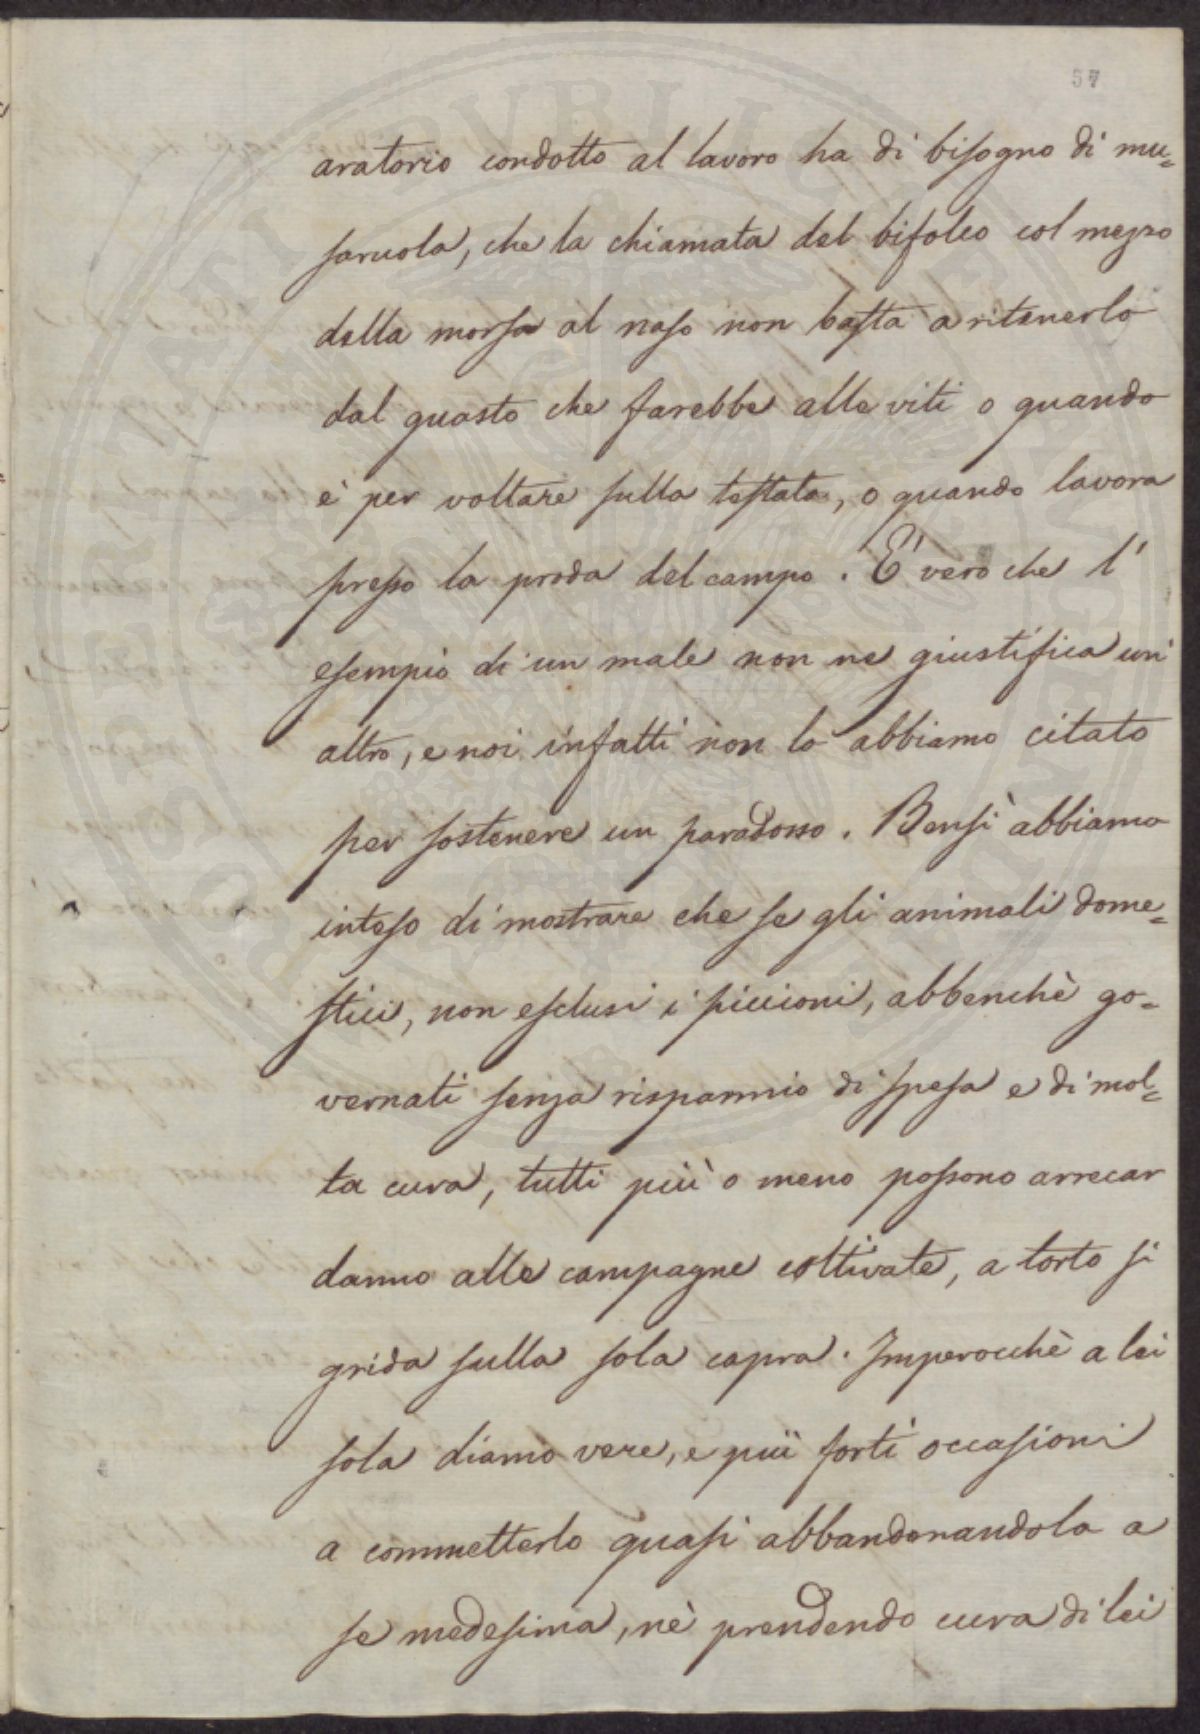 57
aratorio condotto al lavoro ha di bisogno di mu=
saruola, che la chiamata del bifolco col mezzo
della morsa al naso non basta a ritenerlo
dal guasto che farebbe alle viti o quando
è per voltare sulla testata, o quando lavora
presso la proda del campo. E' vero che l'
esempio di un male non ne giustifica un'
altro, e noi infatti non lo abbiamo citato
per sostenere un paradosso. Bensì abbiamo
inteso di mostrare che se gli animali dome=
stici, non esclusi i piccioni, abbenchè go=
vernati senza risparmio di spesa e di mol=
ta cura, tutti più o meno possono arrecar
danno alle campagne coltivate, a torto si
grida sulla sola capra. Imperocchè a lei
sola diamo vere, e più forti occasioni
a commetterlo quasi abbandonandola a
se medesima, nè prendendo cura di lei